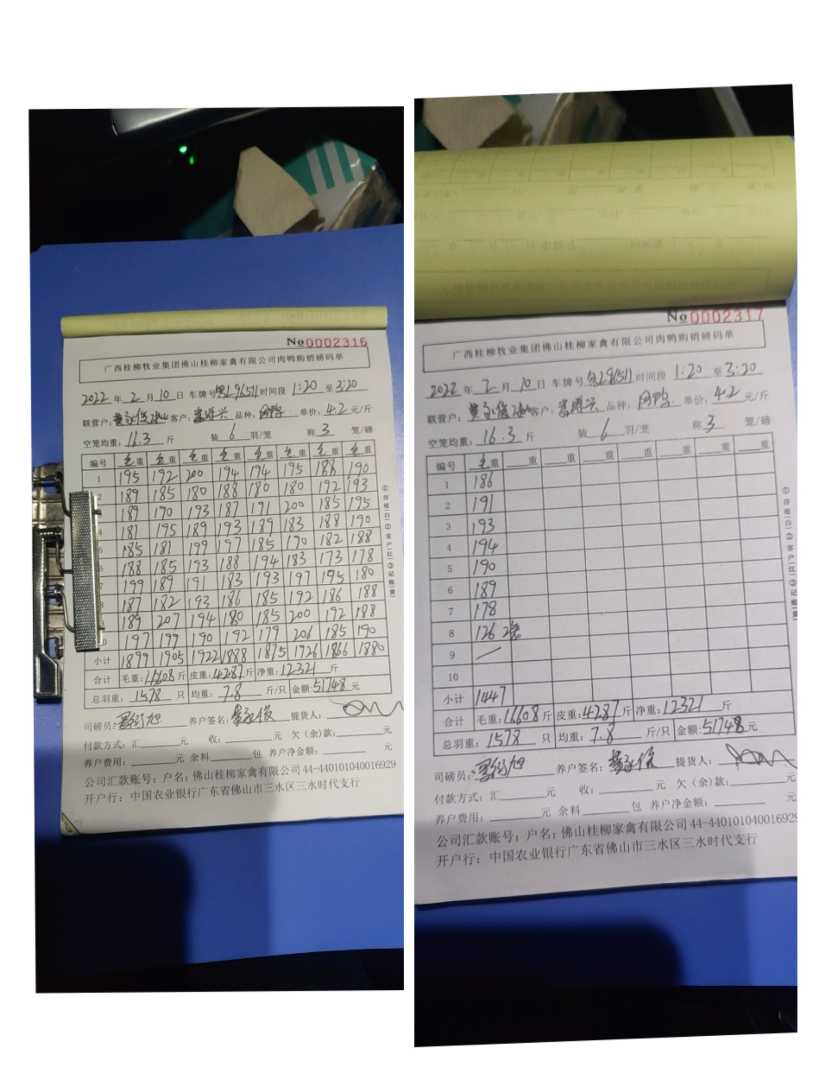 No 0002316
广西桂柳牧业集团佛山桂柳家禽有限公司肉鸭购销磅码单
2022 年 2 月 10 日 车牌号 时间段 1:20 至 3:20
联营户: 客户: 品种: 单价: 4.2 元/斤
空笼均重: 16.3 斤 装 6 羽/笼 称 3 笼/磅
编号 毛重 毛重 毛重 毛重 毛重 毛重 毛重 毛重
1 195 192 200 194 194 195 186 190
2 189 185 180 188 180 180 192 193
189 170 193 187 191 200 185 195
187 195 189 193 189 183 188 190
185 181 199 197 185 170 182 188
188 185 193 188 194 183 173 178
199 189 191 183 193 197 195 180
187 182 193 186 185 192 186 188
189 207 194 180 185 200 192 188
197 199 190 192 179 206 185 190
小计 1899 1905 1922 1888 1875 1926 1866 1880
合计 毛重: 16608 斤 皮重: 4287 斤 净重: 12321 斤
总羽重: 1578 只 均重: 7.8 斤/只 金额: 51748 元
司磅员: 养户签名: 提货人:
付款方式: 汇 元 收: 元 欠(余)款: 元
养户费用: 元 余料 包 养户净金额: 元
公司汇款账号: 户名: 佛山桂柳家禽有限公司 44-440101040016929
开户行: 中国农业银行广东省佛山市三水区三水时代支行
No 0002317
广西桂柳牧业集团佛山桂柳家禽有限公司肉鸭购销磅码单
2022 年 2 月 10 日 车牌号 时间段 1:20 至 3:20
联营户: 客户: 品种: 单价: 4.2 元/斤
空笼均重: 16.3 斤 装 6 羽/笼 称 3 笼/磅
编号 毛重 重 重 重 重 重 重 重
1 186
2 191
3 193
4 194
5 190
6 189
7 178
8 126 2笼
9
10
小计 1447
合计 毛重: 16608 斤 皮重: 4287 斤 净重: 12321 斤
总羽重: 1578 只 均重: 7.8 斤/只 金额: 51748 元
司磅员: 养户签名: 提货人:
付款方式: 汇 元 收: 元 欠(余)款: 元
养户费用: 元 余料 包 养户净金额: 元
公司汇款账号: 户名: 佛山桂柳家禽有限公司 44-440101040016929
开户行: 中国农业银行广东省佛山市三水区三水时代支行